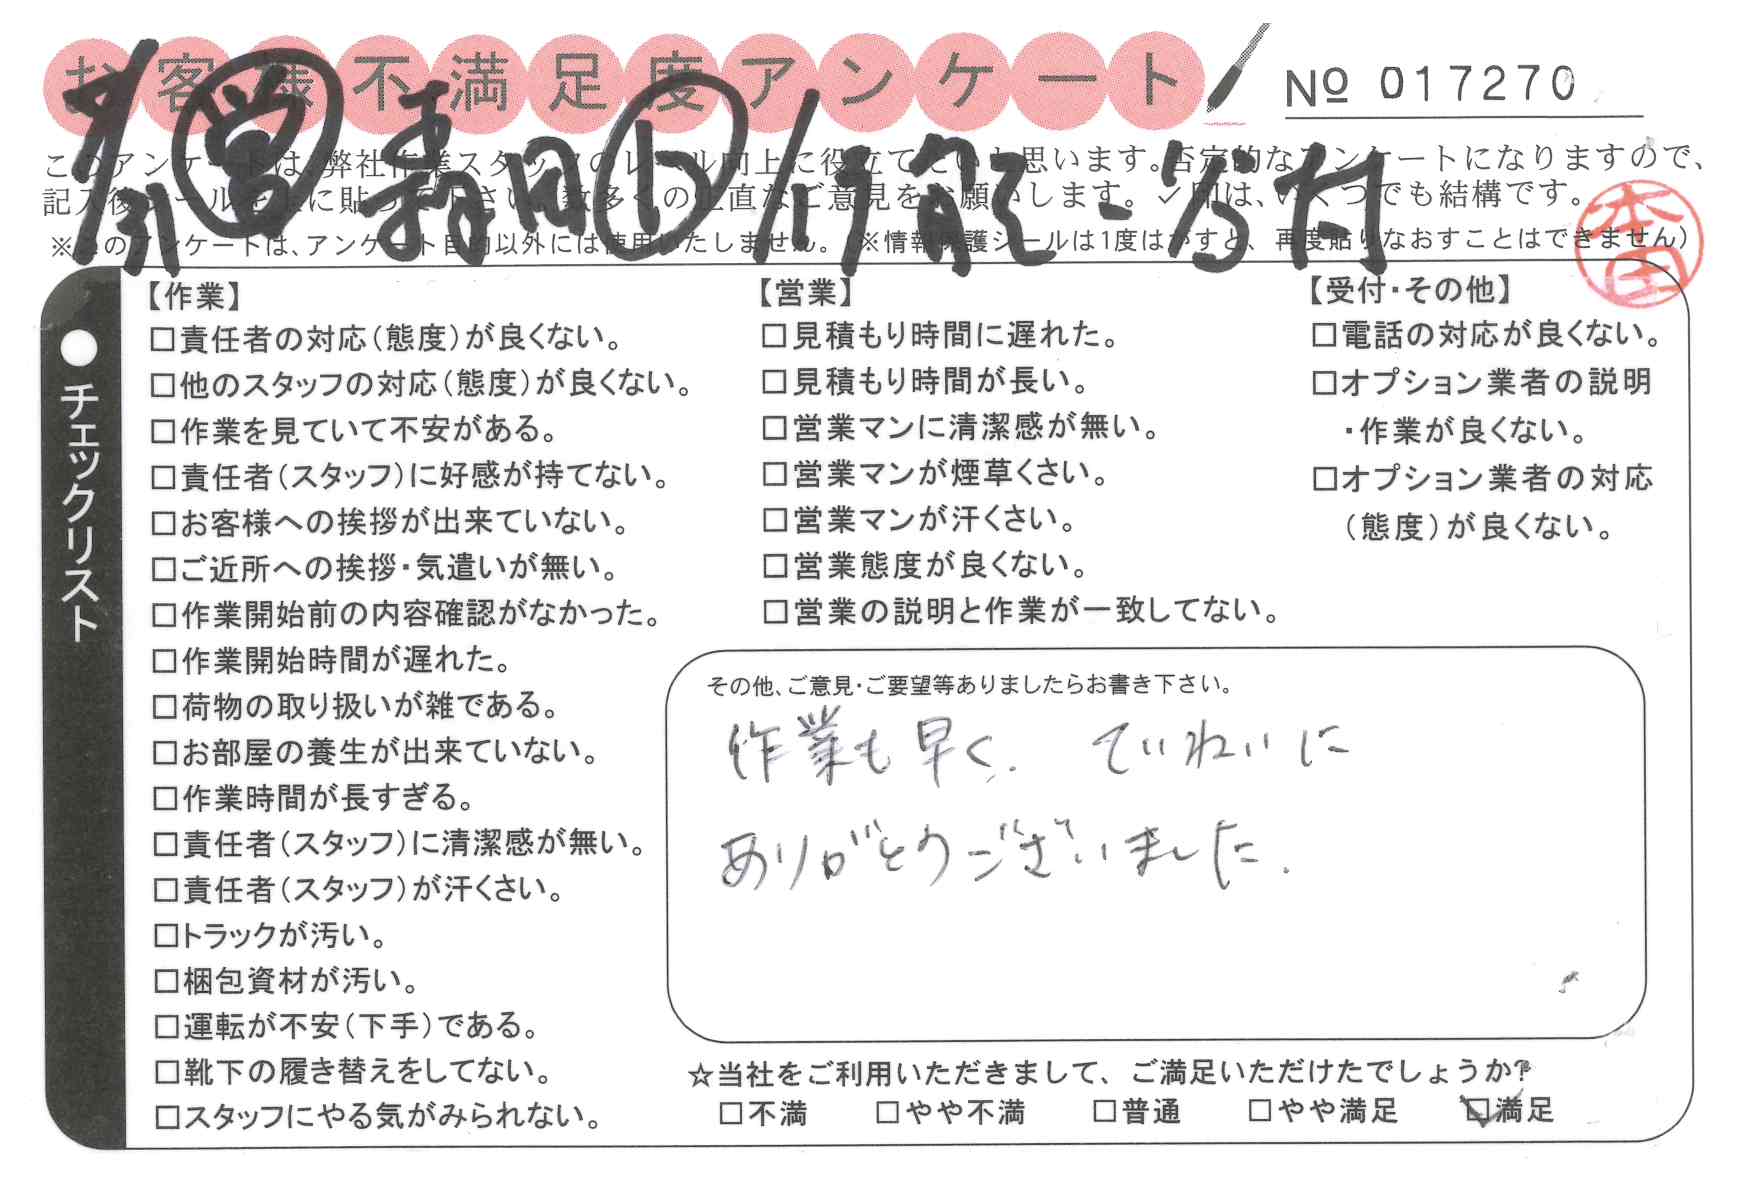 お客様不満足度アンケート
№ 017270
このアンケートは、弊社作業スタッフのレベル向上に役立てたいと思います。否定的なアンケートになりますので、
記入後シールを上に貼って下さい。数多くの正直なご意見をお願いします。✓印は、いくつでも結構です。
※このアンケートは、アンケート目的以外には使用いたしません。(※情報保護シールは1度はがすと、再度貼りなおすことはできません)
営
本田
チェックリスト
【作業】
□責任者の対応(態度)が良くない。
□他のスタッフの対応(態度)が良くない。
□作業を見ていて不安がある。
□責任者(スタッフ)に好感が持てない。
□お客様への挨拶が出来ていない。
□ご近所への挨拶・気遣いが無い。
□作業開始前の内容確認がなかった。
□作業開始時間が遅れた。
□荷物の取り扱いが雑である。
□お部屋の養生が出来ていない。
□作業時間が長すぎる。
□責任者(スタッフ)に清潔感が無い。
□責任者(スタッフ)が汗くさい。
□トラックが汚い。
□梱包資材が汚い。
□運転が不安(下手)である。
□靴下の履き替えをしてない。
□スタッフにやる気がみられない。
【営業】
□見積もり時間に遅れた。
□見積もり時間が長い。
□営業マンに清潔感が無い。
□営業マンが煙草くさい。
□営業マンが汗くさい。
□営業態度が良くない。
□営業の説明と作業が一致してない。
【受付・その他】
□電話の対応が良くない。
□オプション業者の説明
・作業が良くない。
□オプション業者の対応
(態度)が良くない。
その他、ご意見・ご要望等ありましたらお書き下さい。
作業も早く、ていねいに
ありがとうございました.
☆当社をご利用いただきまして、ご満足いただけたでしょうか?
□不満 □やや不満 □普通 □やや満足 ☑満足